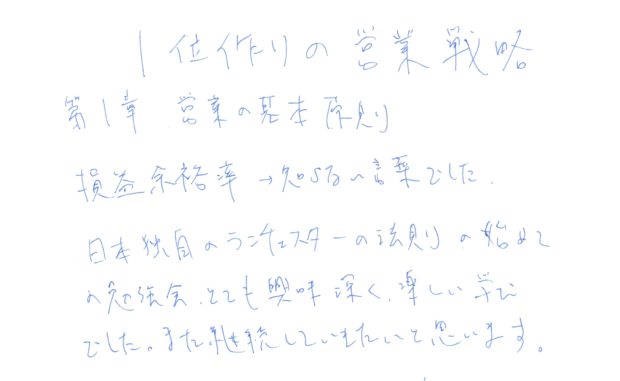 1位作りの営業戦略
第1章 営業の基本原則
損益余裕率→知らない言葉でした.
日本独自のランチェスターの法則の始めて
の勉強会、とても興味深く、楽しい学び
でした。また継続していきたいと思います。